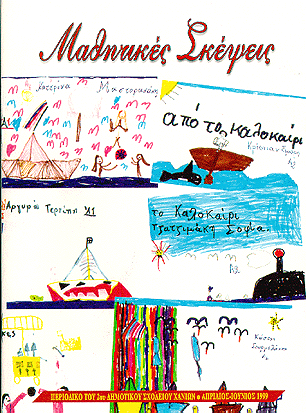 Μαθητικές Σκέψεις
Κατερίνα
από το καλοκαίρι
Αργυρώ Τερζίπη Δ1
το Καλοκαίρι
Τζατζιμάκη Σοφία
ΠΕΡΙΟΔΙΚΟ ΤΟΥ 3ου ΔΗΜΟΤΙΚΟΥ ΣΧΟΛΕΙΟΥ ΧΑΝΙΩΝ ΑΠΡΙΛΙΟΣ-ΙΟΥΝΙΟΣ 1999